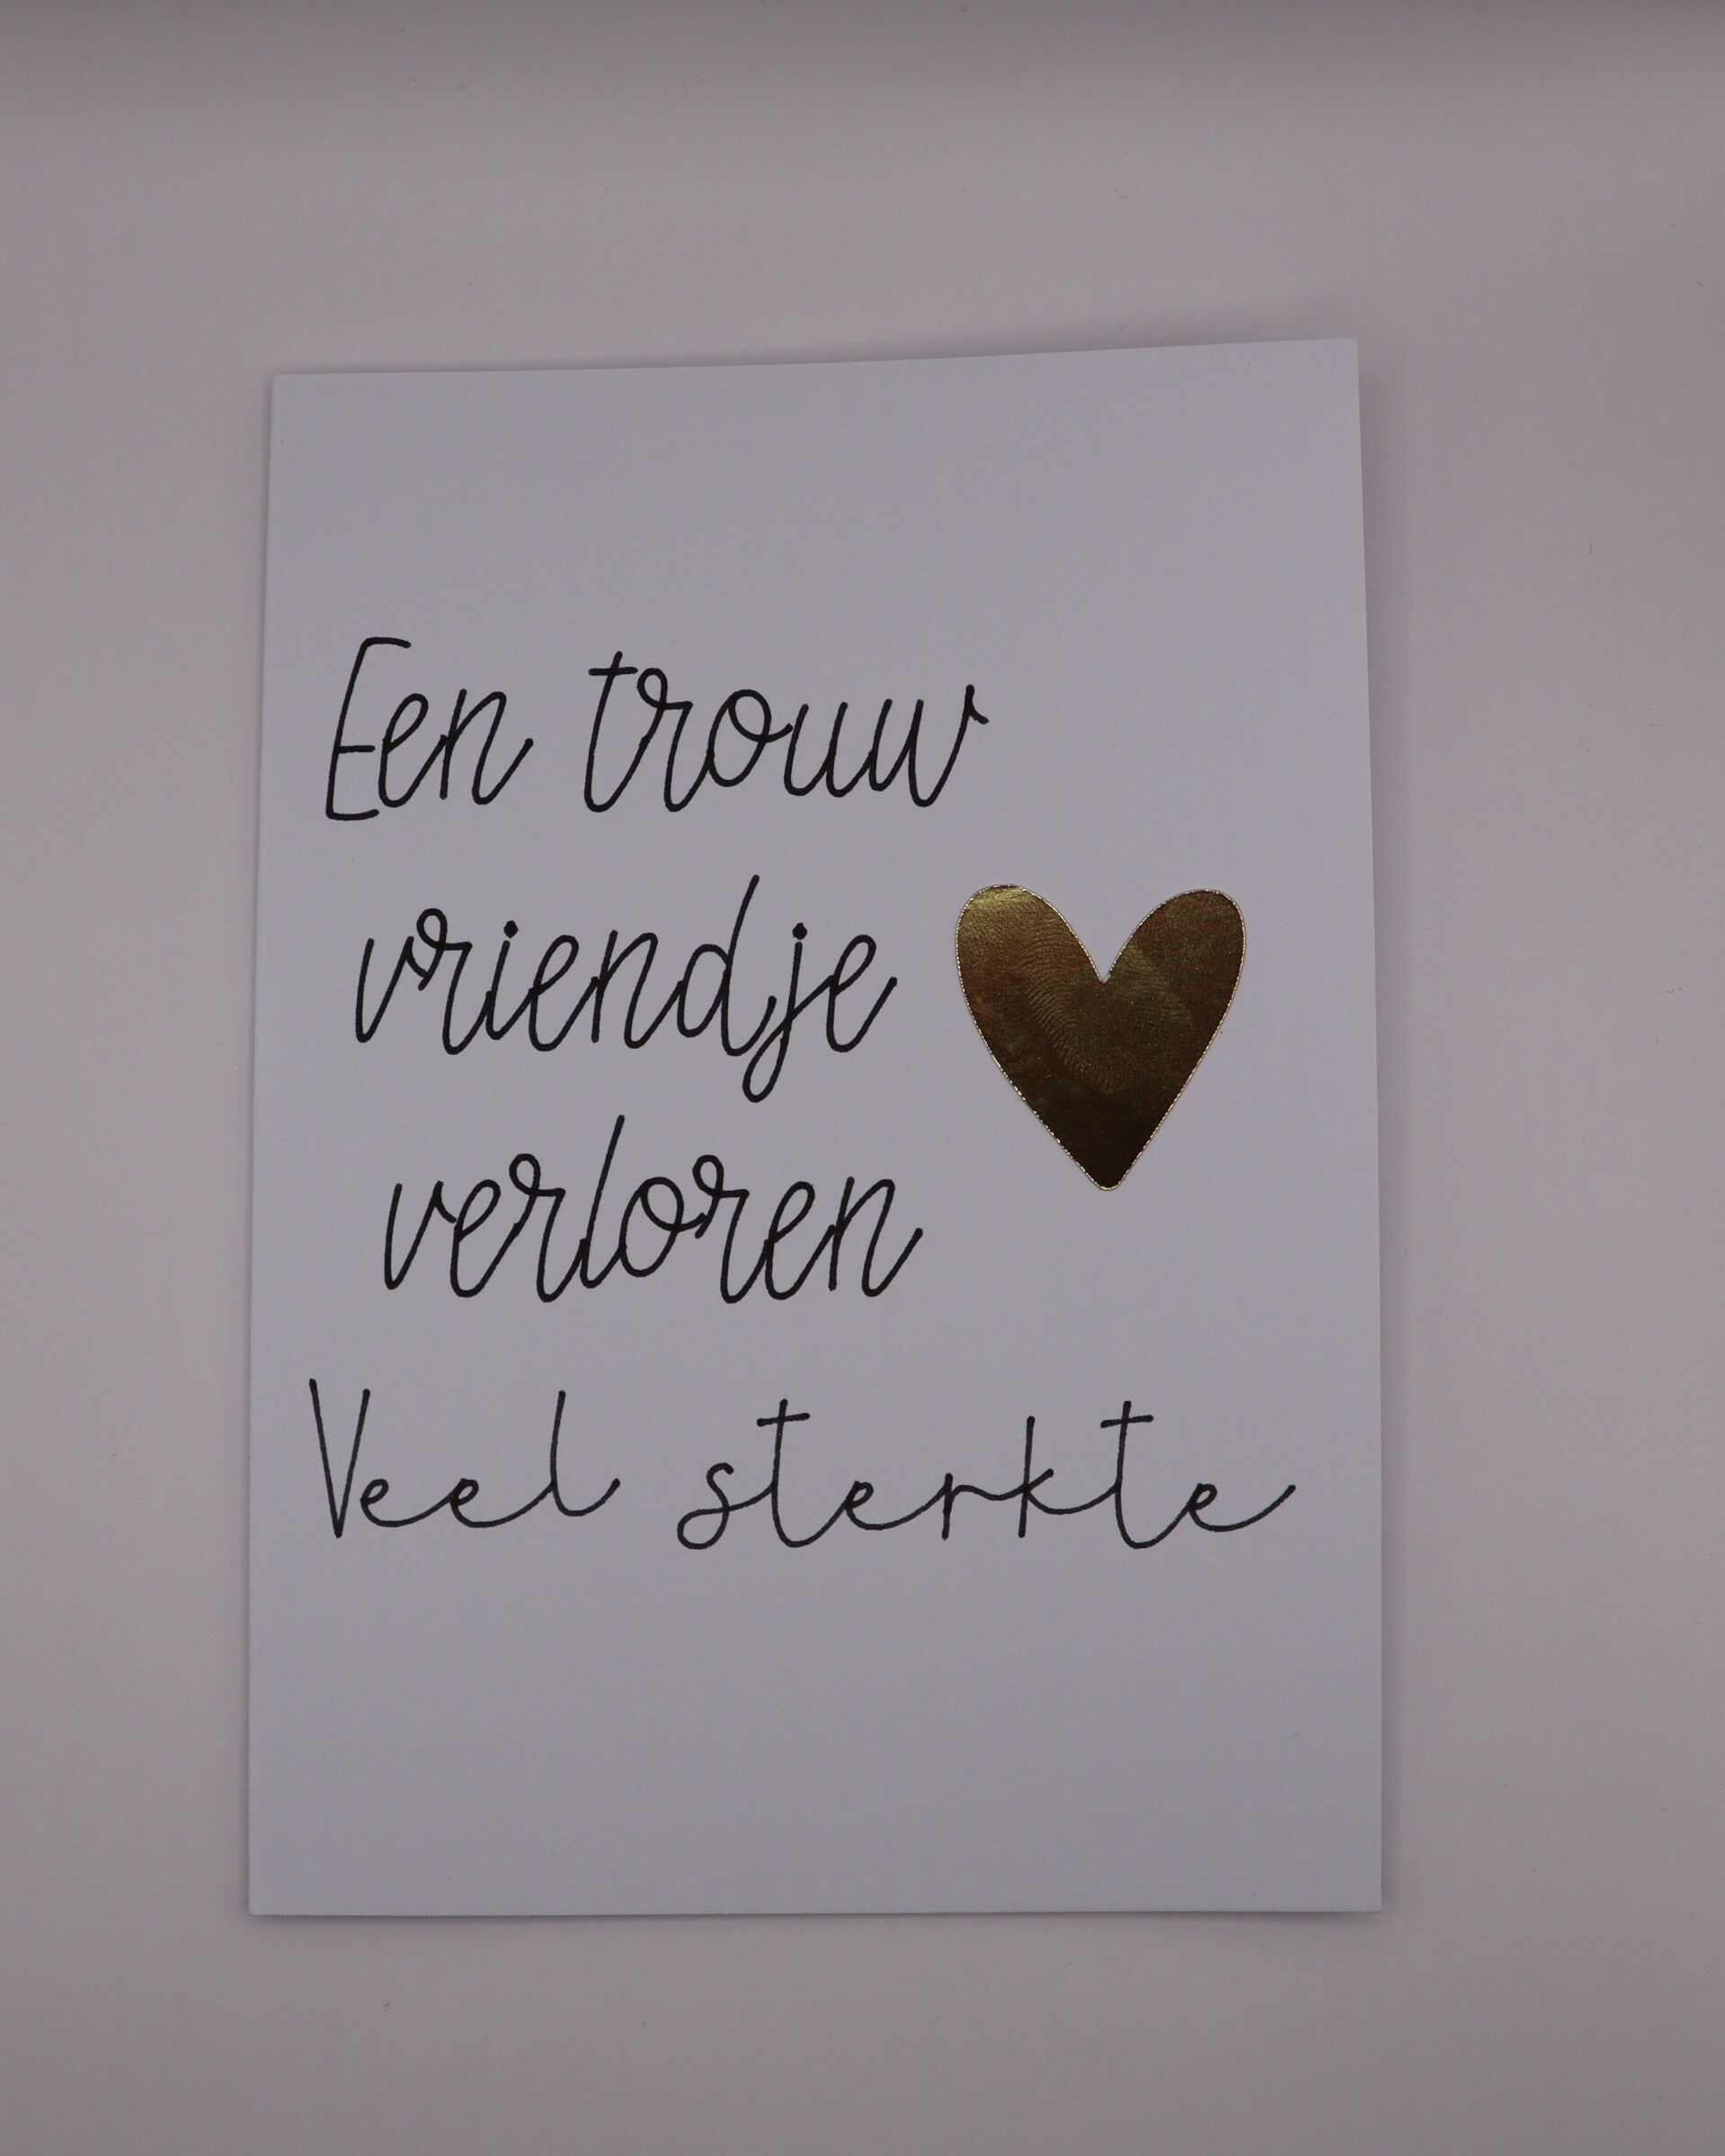 Een trouw
vriendje
verloren
Veel sterkte